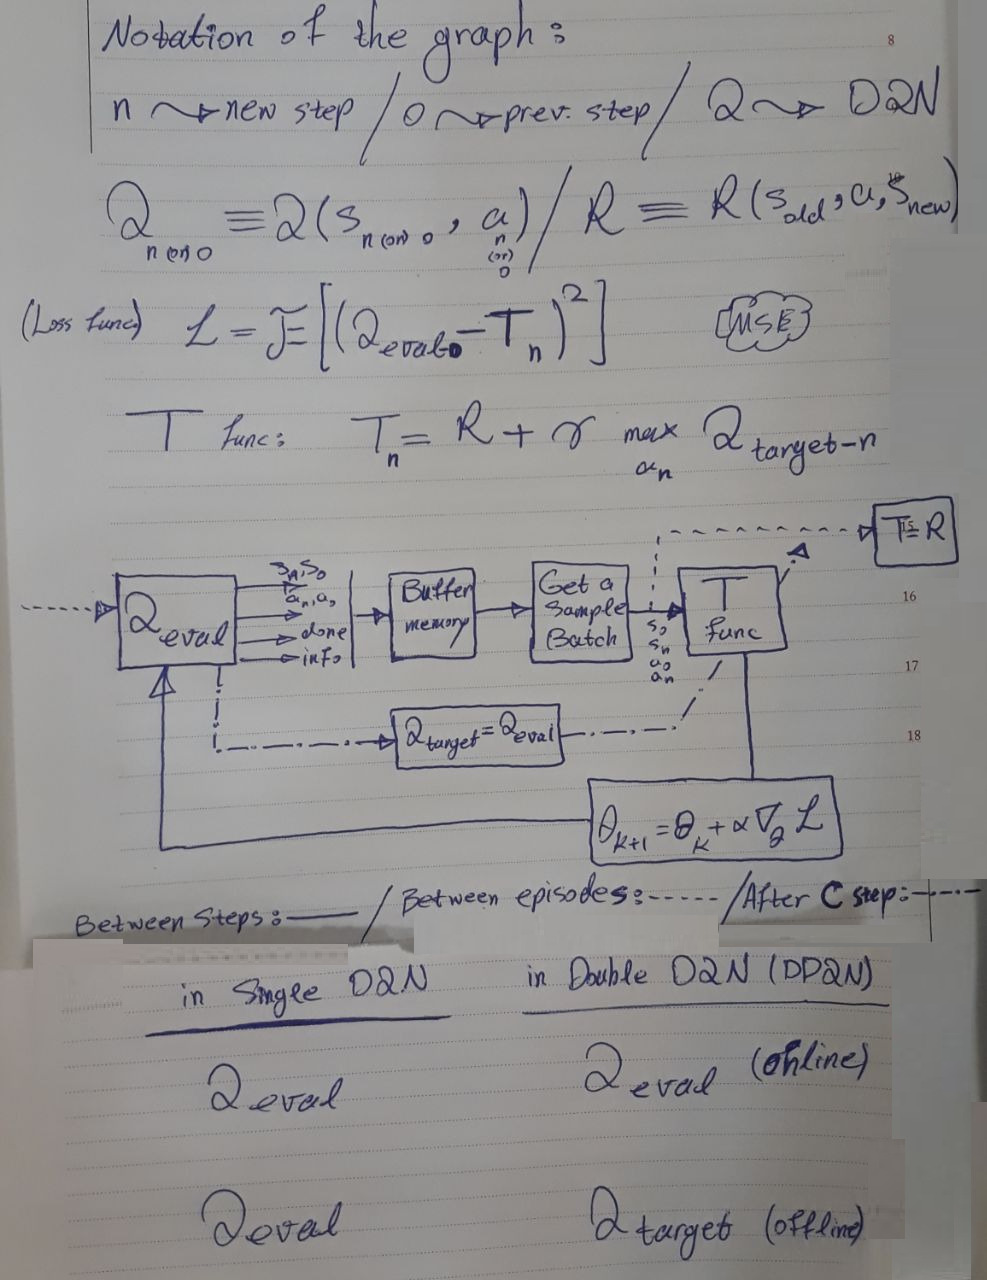 Notation of the graph:
8
n → new step / o → prev. step / Q → DQN
Q n(or)o ≡ Q(s n(or)o, a n (or) o) / R ≡ R(s old, a, s new)
(Loss func) L = E[(Q eval-o - T n)²] MSE
T func: T n = R + γ max a n Q target-n
T = R
15
s n, s o
a n, a o
done
info
Q eval
Buffer
memory
Get a
Sample
Batch
s o
s n
a o
a n
T
func
16
17
Q target = Q eval
18
θ k+1 = θ k + α ∇ Q L
Between Steps: —— / Between episodes: ----- / After C step: -·-·-
in Single DQN in Double DQN (DDQN)
Q eval Q eval (online)
Q eval Q target (offline)